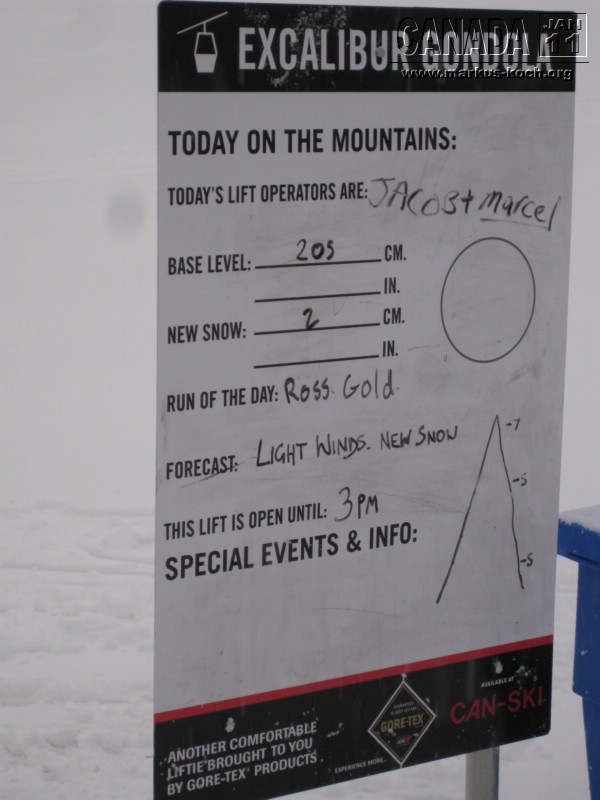 CANADA JAN 11
www.markus-koch.org
EXCALIBUR GONDOLA
TODAY ON THE MOUNTAINS:
TODAY'S LIFT OPERATORS ARE: JACOB + Marcel
BASE LEVEL: 205 CM.
IN.
NEW SNOW: 2 CM.
IN.
RUN OF THE DAY: Ross. Gold
FORECAST: LIGHT WINDS. NEW SNOW
-7
-5
THIS LIFT IS OPEN UNTIL: 3PM
SPECIAL EVENTS & INFO:
-5
AVAILABLE AT
CAN-SKI
GORE-TEX
ANOTHER COMFORTABLE
LIFTIE BROUGHT TO YOU
BY GORE-TEX® PRODUCTS
EXPERIENCE MORE...